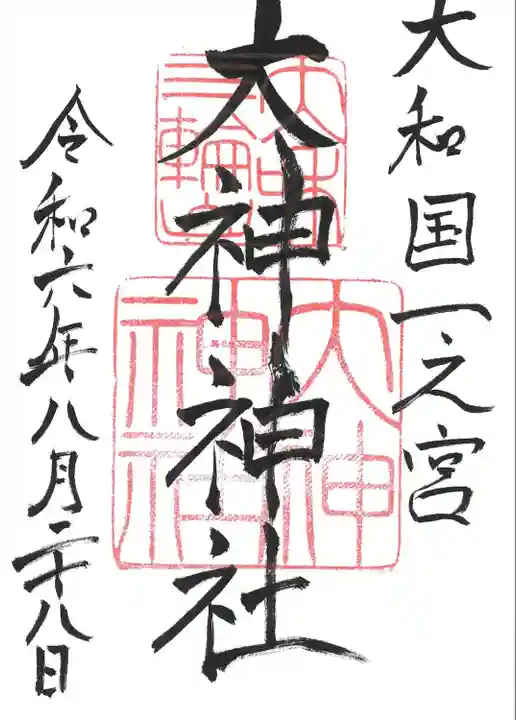 大和国一之宮
大神神社
令和六年八月二十八日
大神
神社